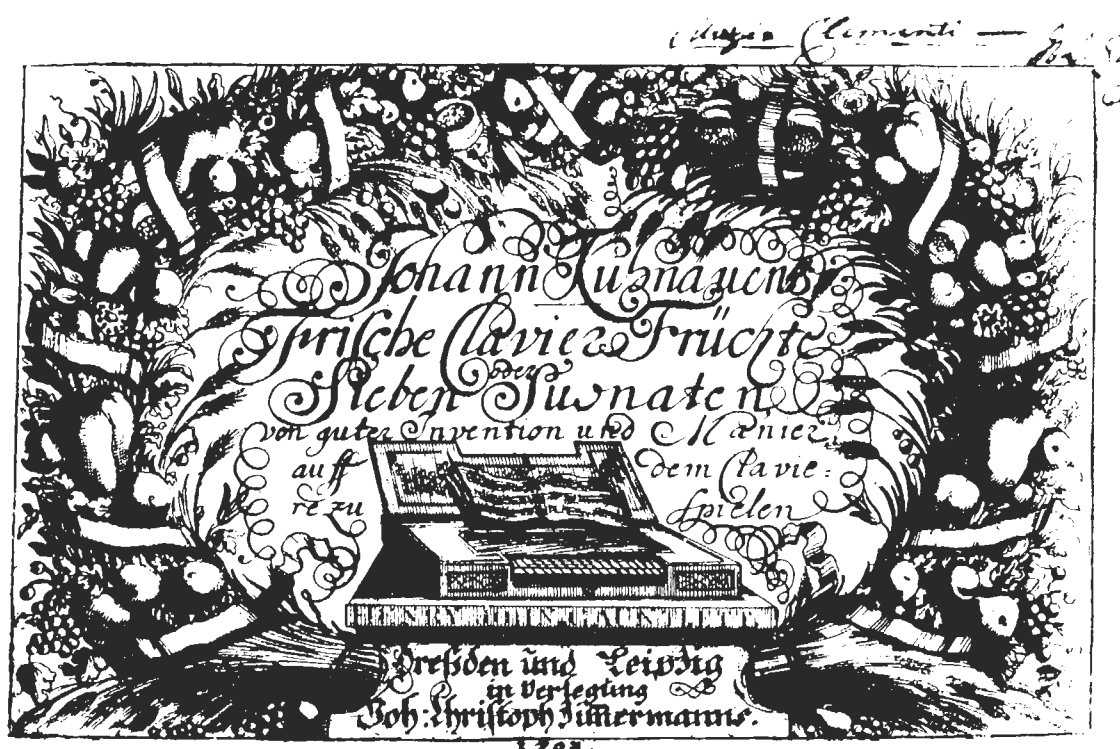 Muzio Clementi —
Johann Kuhnauens
Frische Clavier Früchte
oder
Sieben Suonaten
von guter Invention und Manier
auff dem Clavie=
re zu spielen
Dreßden und Leipzig
in Verlegung
Joh: Christoph Zim̄ermanns.